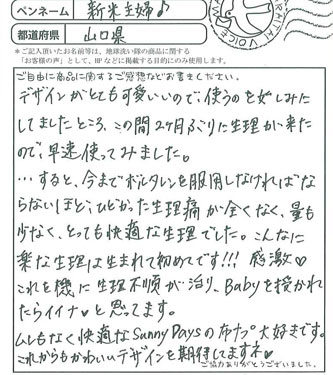 ペンネーム 新米主婦♪
都道府県 山口県
＊ご記入頂いたお名前等は、地球洗い隊の商品に関する
「お客様の声」として、HPなどに掲載する目的にのみ使用します。
ご自由に商品に関するご感想などお書きください。
デザインがとても可愛いいので、使うのを楽しみに
してましたところ、この間2ヶ月ぶりに生理が来た
ので、早速使ってみました。
…すると、今までボルタレンを服用しなければな
らないほど、ひどかった生理痛が全くなく、量も
少なく、とっても快適な生理でした。こんなに
楽な生理は生まれて初めてです!!! 感激♡
これを機に生理不順が治り、Babyを授かれ
たらイイナ♥と思ってます。
ムレもなく快適なSunny Daysの布ナプ大好きです。
これからもかわいいデザインを期待してますネ♥
ご協力ありがとうございました。